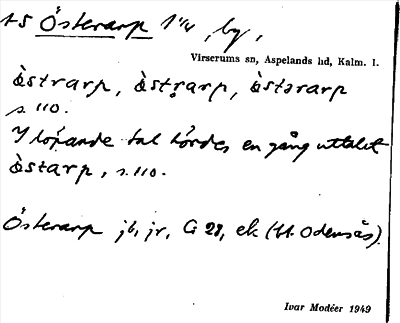 +S Österarp 1 1/4, by,
Virserums sn, Aspelands hd, Kalm. l.
östrarp, östrarp, östərarp
s. 110.
I löpande tal hördes en gång uttalet
östarp, s. 110.
Österarp jb, jr, G 28, ek (tt. Odensås).
Ivar Modéer 1949